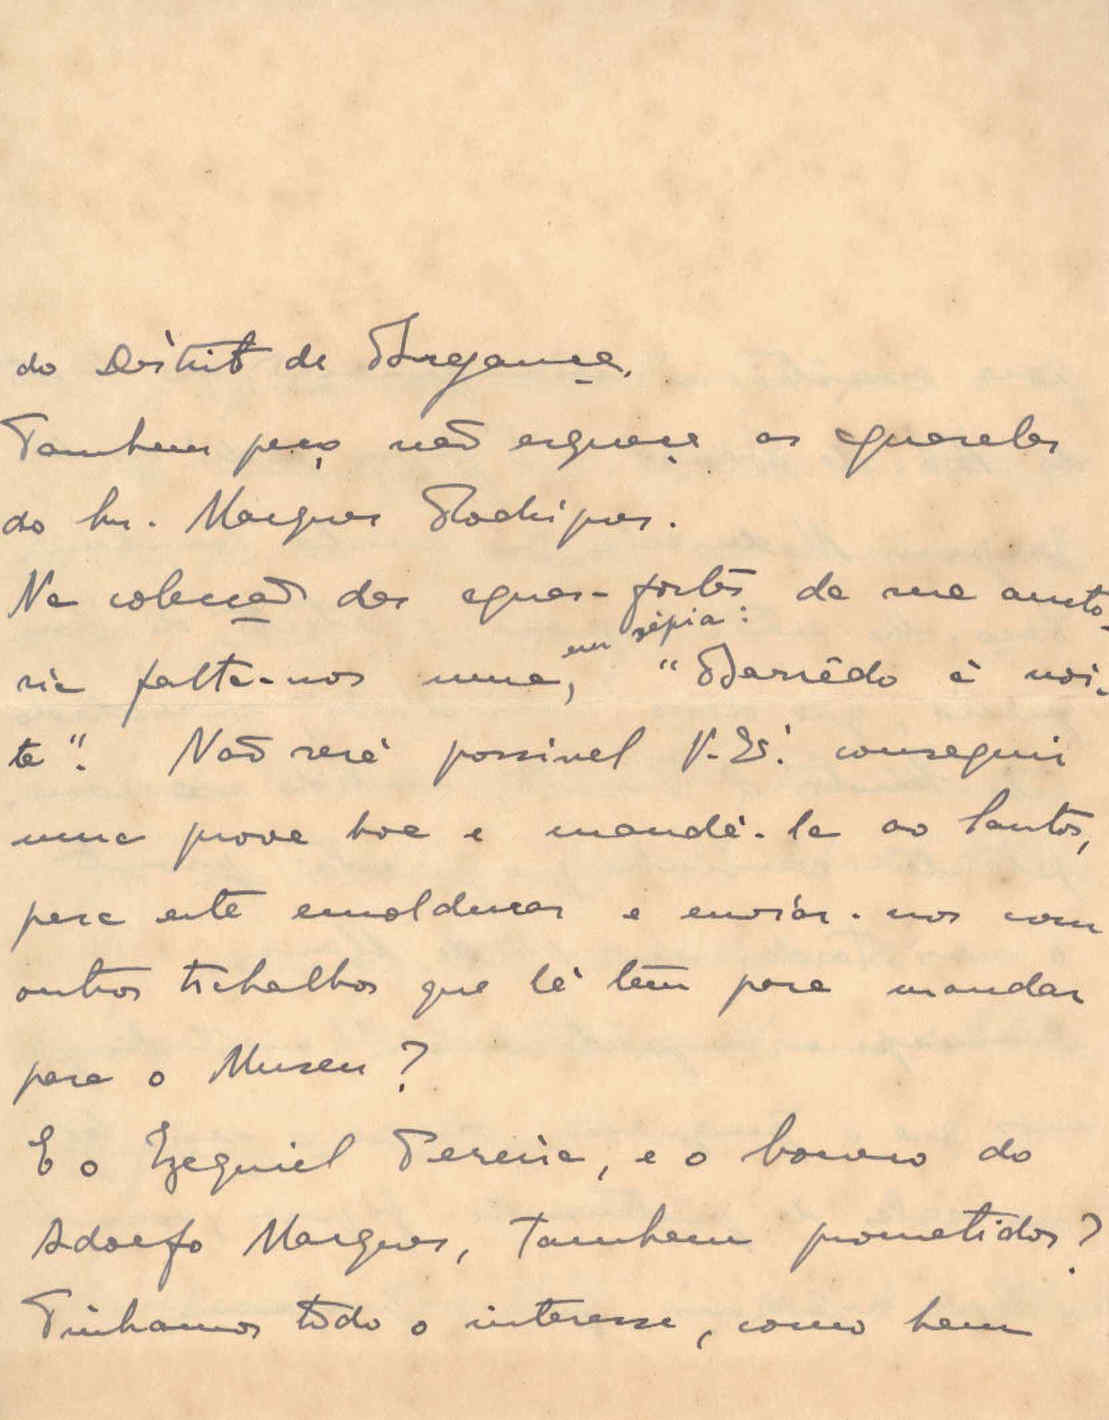 do Distrito de Bragança.
Tambem peço não esqueça as aguarelas
do Snr. Marques Rodrigues.
Na colecção das aguas-fortes da sua auto-
ria falta-nos uma, em sépia: "Barrêdo á noi-
te". Não será possivel V. Ex.ª conseguir
uma prova boa e mandá-la ao Santos,
para este emoldurar e enviár-nos com
outros trabalhos que lá têm para mandar
para o Museu?
E o Ezequiel Pereira, e o bronco do
Adolfo Marques, tambem prometidos?
Tinhamos todo o interesse, como bem